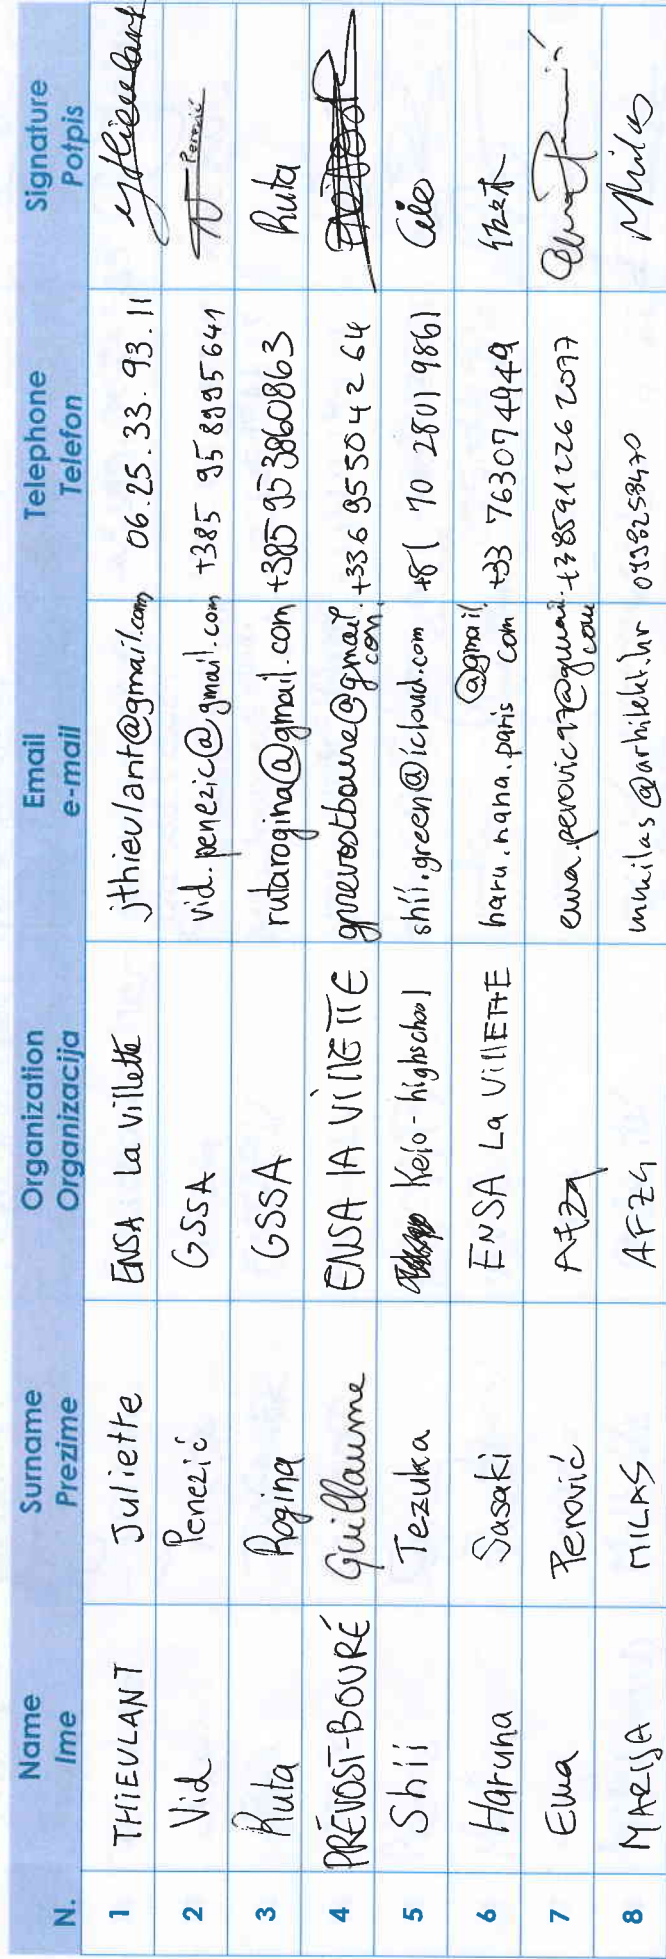 N. Name Surname Organization Email Telephone Signature
Ime Prezime Organizacija e-mail Telefon Potpis
1 THIEULANT Juliette ENSA La Villette jthieulant@gmail.com 06.25.33.93.11
2 Vid Penezić GSSA vid.penezic@gmail.com +385 95 8995641 Penezić
3 Ruta Rogina GSSA rutarogina@gmail.com +385 95 3860863 Ruta
4 PRÉVOST-BOURÉ Guillaume ENSA LA VILLETTE gprevostboure@gmail.com. +336 95504264
5 Shii Tezuka Keio-highschool shii.green@icloud.com +81 70 2801 9861
6 Haruna Sasaki ENSA La VillETTE haru.nana.paris @gmail.com +33 763074949 佐々木
7 Ema Perović AFZG ema.perovic97@gmail.com +385912262077
8 MARIJA MILAS AFZG mmilas@arhitekt.hr Milas